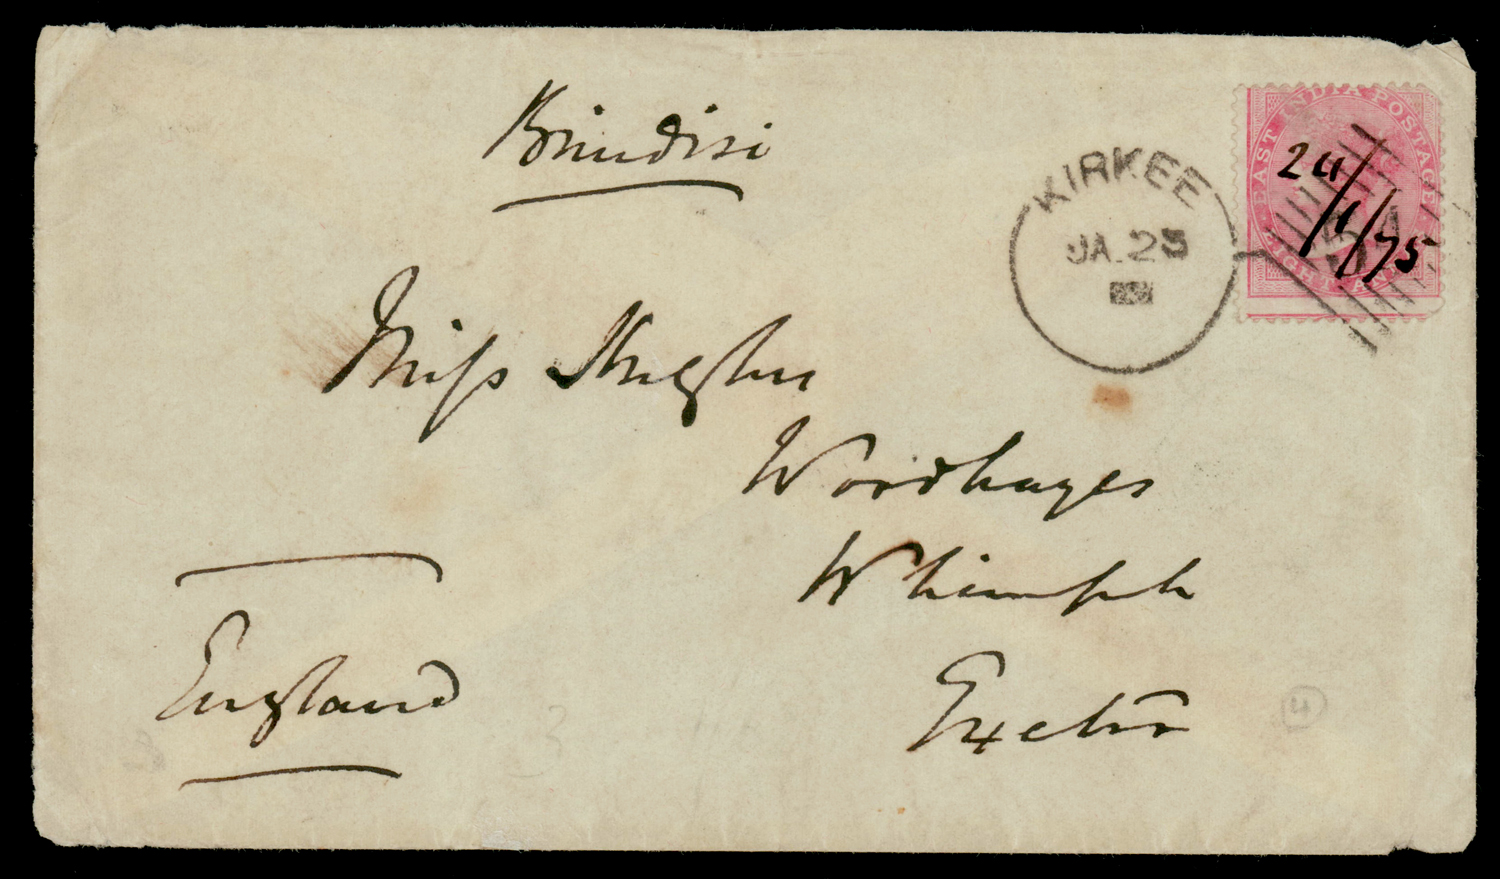 Brindisi
EAST INDIA POSTAGE
EIGHT ANNAS
24/1/75
KIRKEE
JA. 25
Miss Hughes
Woodhayes
Whimple
Exeter
England
4